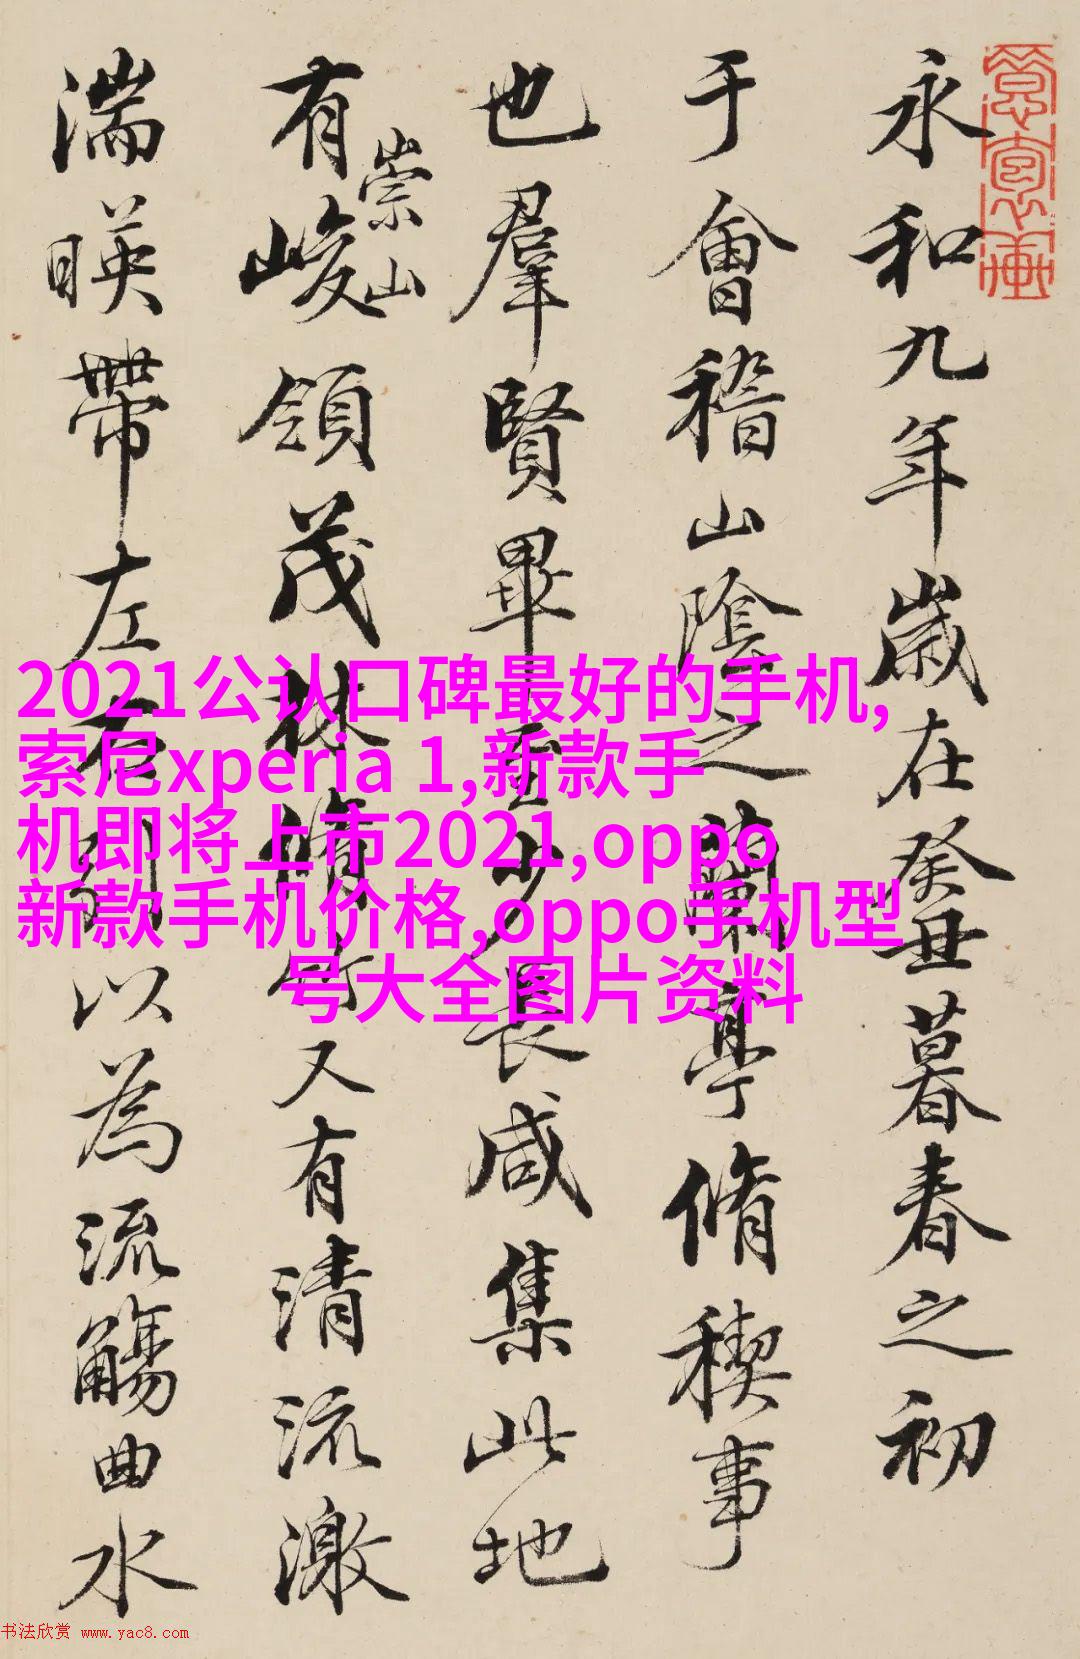 永和九年歲在癸丑暮春之初
于會稽山陰之蘭亭脩稧事
也羣賢畢至少長咸集此地
有崇山峻領茂林脩竹又有清流激
湍暎帶左右引以為流觴曲水
2021公认口碑最好的手机,
索尼xperia 1,新款手
机即将上市2021,oppo
新款手机价格,oppo手机型
号大全图片资料
书法欣赏 www.yac8.com